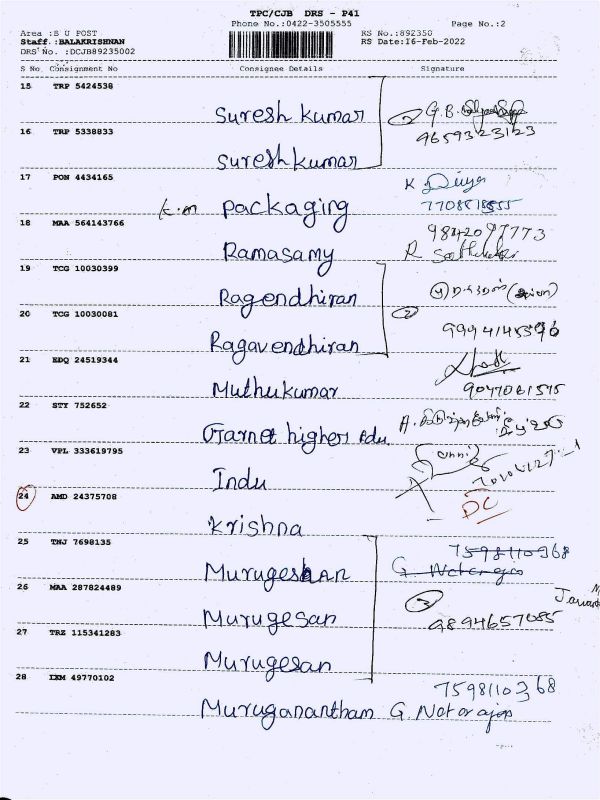 TPC/CJB DRS - P41
Phone No.:0422-3505555
Page No.:2
Area :S U POST
Staff :BALAKRISHNAN
DRS No. :DCJB89235002
RS No.:892350
RS Date:16-Feb-2022
S No. Consignment No Consignee Details Signature
15 TRP 5424538
Suresh Kumar
2 G.B.
9659323123
16 TRP 5338833
Suresh Kumar
17 PON 4434165
K Divya
K.M Packaging
18 MAA 564143766
9842097773
Ramasamy R
19 TCG 10030399
Ragendhiran
20 TCG 10030081
2
Ragavendhiran
21 EDQ 24519344
Muthukumar
22 STY 752652
Garnet higher Edu. A.
23 VPL 333619795
Indu
24 AMD 24375708
DC
Krishna
25 TNJ 7698135
7598110368
Murugeshan G. Natarajan
26 MAA 287824489
3
9894657085
Murugesan
27 TRZ 115341283
Murugesan
28 IXM 49770102
7598110368
Muruganantham G. Natarajan